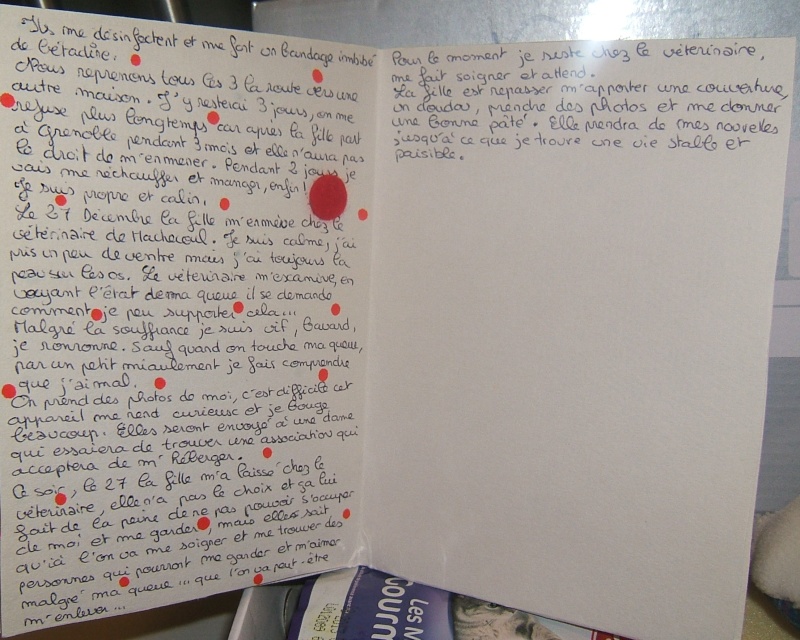 Ils me désinfectent et me font un bandage imbibé
de Bétadine.
Nous reprenons tous les 3 la route vers une
autre maison. J'y resterai 3 jours, on me
refuse plus longtemps car après la fille part
à Grenoble pendant 3 mois et elle n'aura pas
le droit de m'emmener. Pendant 2 jours je
vais me réchauffer et manger, enfin!
Je suis propre et calin.
Le 27 Décembre la fille m'emmève chez le
vétérinaire de Machecoul. Je suis calme, j'ai
pris un peu de ventre mais j'ai toujours la
peau sur les os. Le vétérinaire m'examine, en
voyant l'état de ma queue il se demande
comment je peu supporter cela...
Malgré la souffrance je suis vif, bavard,
je ronronne. Sauf quand on touche ma queue,
par un petit miaulement je fais comprendre
que j'ai mal.
On prend des photos de moi, c'est difficile cet
appareil me rend curieuse et je bouge
beaucoup. Elles seront envoyé à une dame
qui essaiera de trouver une association qui
acceptera de m'héberger.
Ce soir, le 27 la fille m'a laissé chez le
vétérinaire, elle n'a pas le choix et ça lui
fait de la peine de ne pas pouvoir s'occuper
de moi et me garder, mais elle sait
qu'ici l'on va me soigner et me trouver des
personnes qui pourront me garder et m'aimer
malgré ma queue ... que l'on va peut-être
m'enlever...
Pour le moment je reste chez le vétérinaire,
me fait soigner et attend.
La fille est repasser m'apporter une couverture,
un doudou, prendre des photos et me donner
une bonne pâté. Elle prendra de mes nouvelles
jusqu'à ce que je trouve une vie stable et
paisible.
Les
Gourm